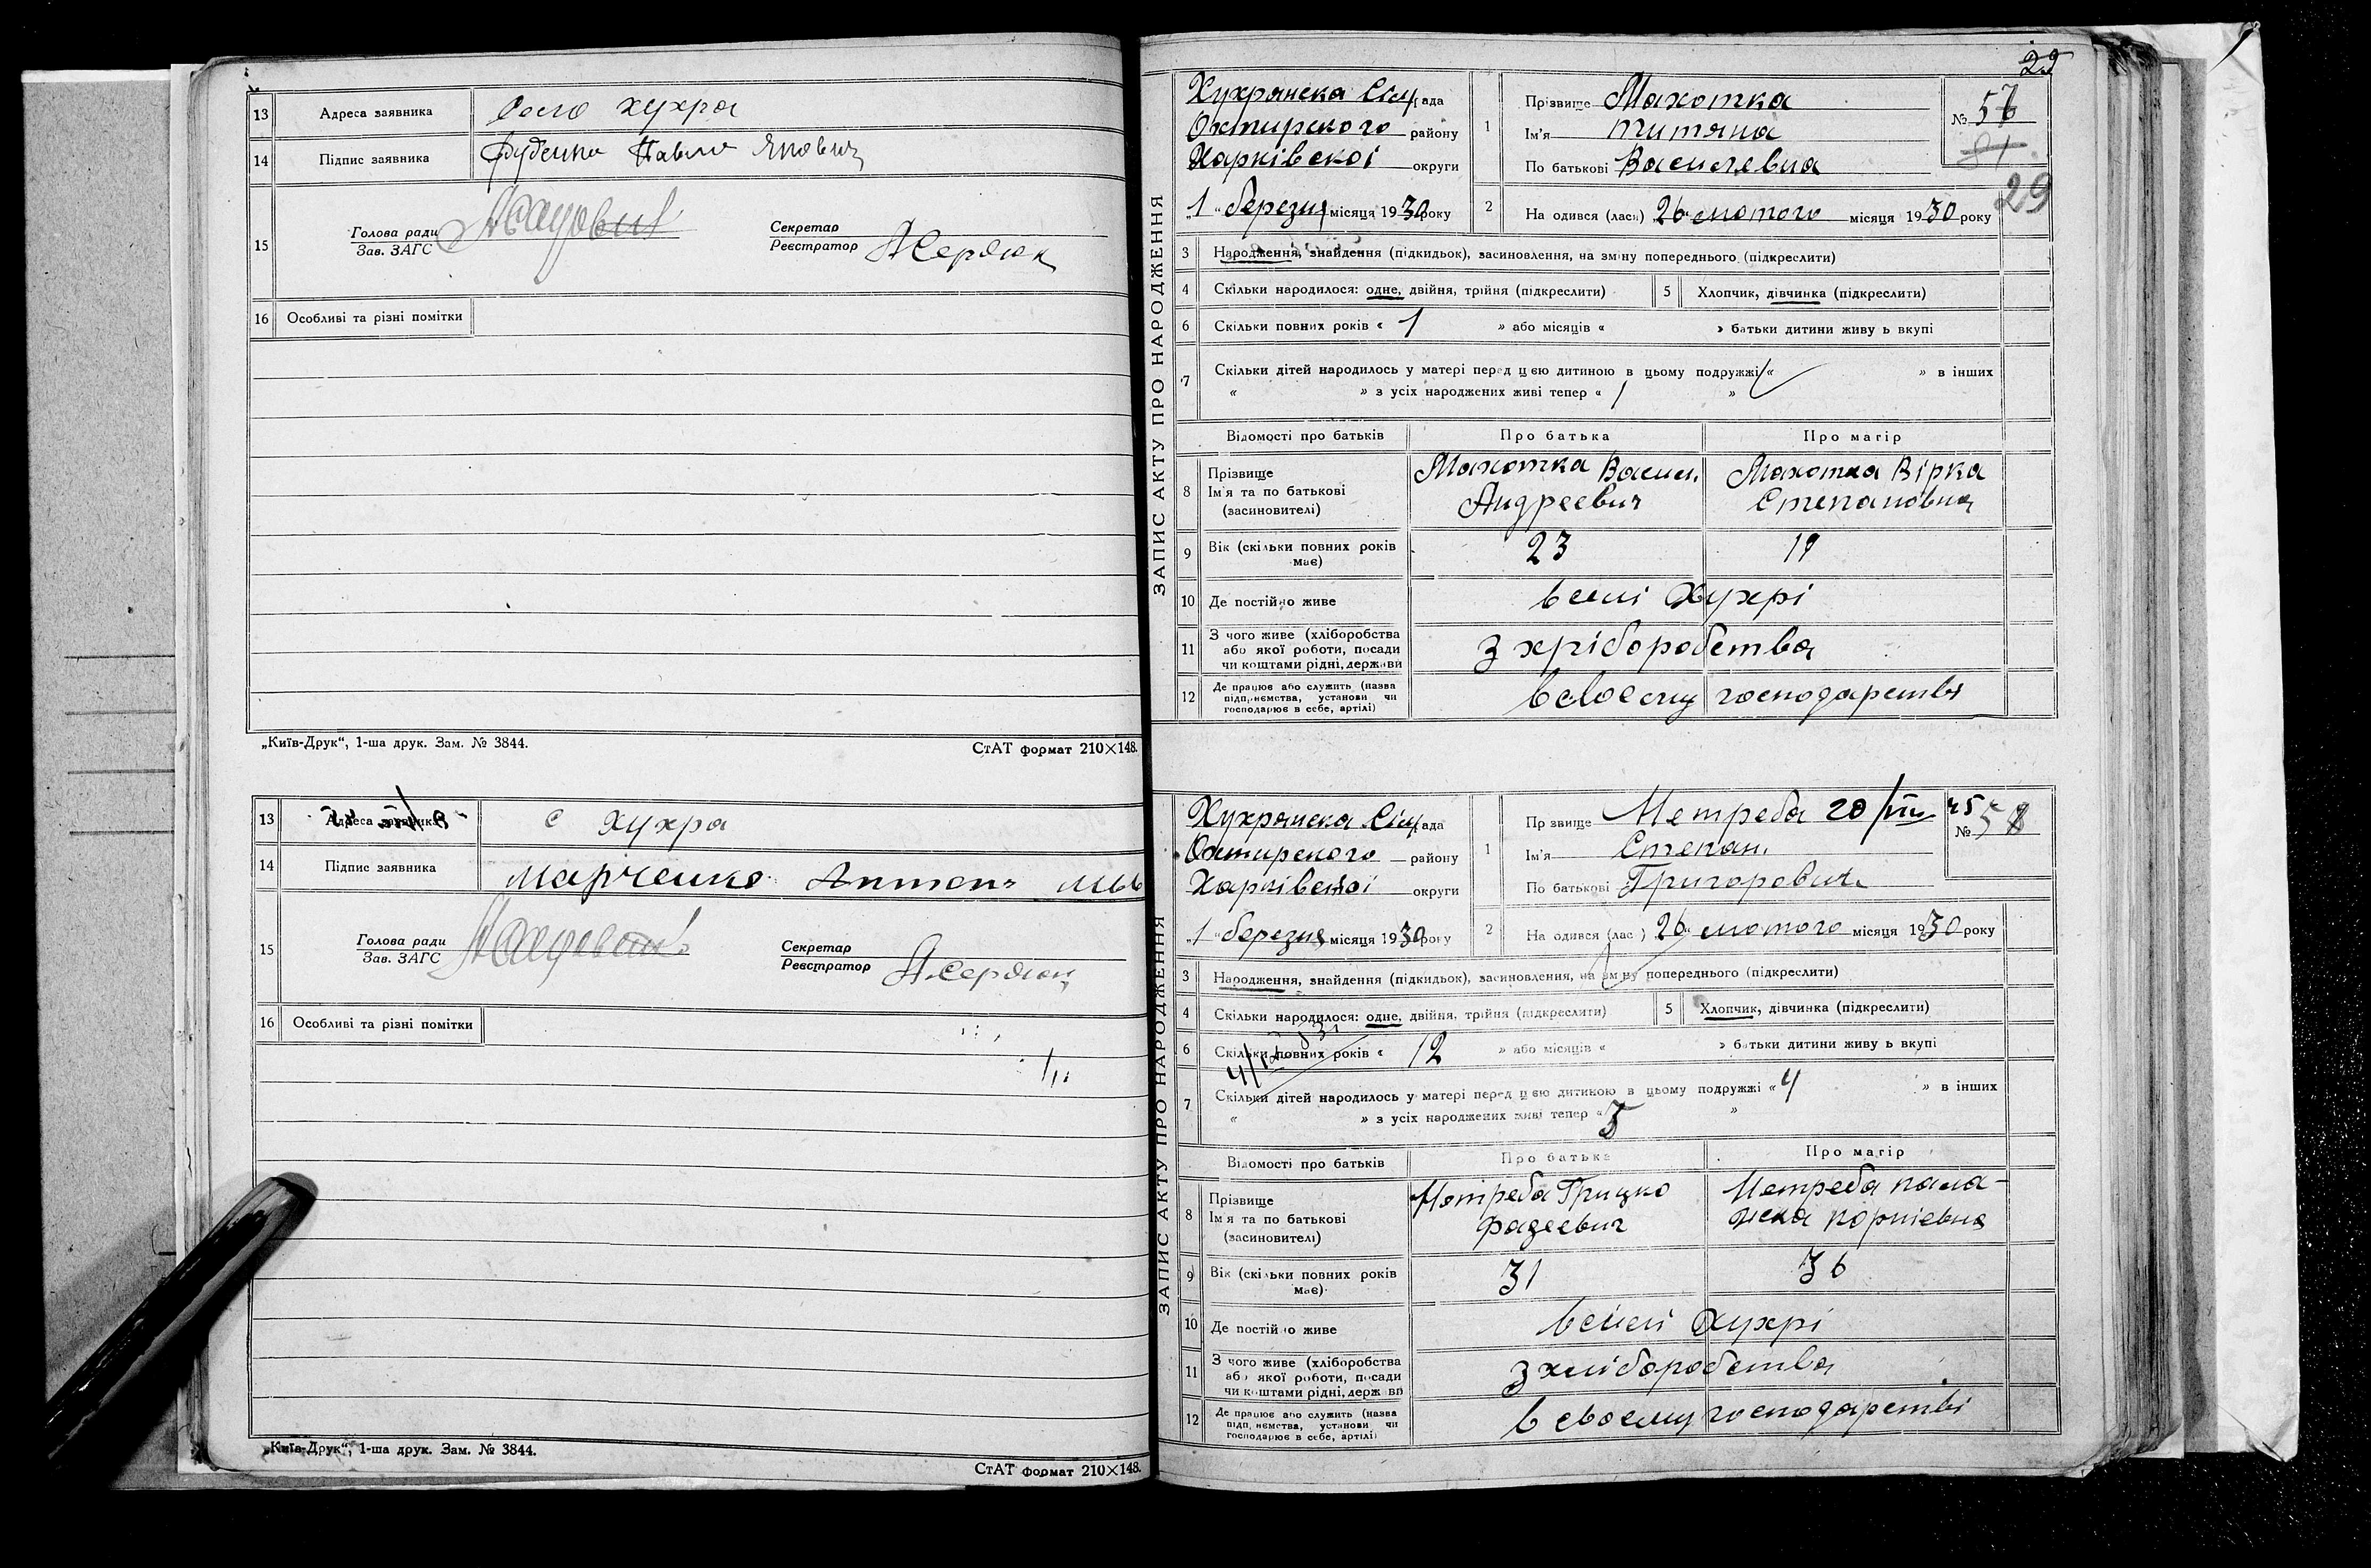 13 Адреса заявника Село Хухра
14 Підпис заявника Руденко Павло Якович
15 Голова ради
Зав. ЗАГС
Секретар
Реєстратор А Сердюк
16 Особливі та різні помітки
„Київ-Друк“, 1-ша друк. Зам. № 3844.
СтАТ формат 210×148.
13 Адреса заявника с Хухра
14 Підпис заявника Марченко Антон
15 Голова ради
Зав. ЗАГС
Секретар
Реєстратор А Сердюк
16 Особливі та різні помітки
„Київ-Друк“, 1-ша друк. Зам. № 3844.
СтАТ формат 210×148.
29
ЗАПИС АКТУ ПРО НАРОДЖЕННЯ
Хухрянска Сіл рада
Охтирского району
Харківскої округи
„1“ березня місяця 1930 року
1 Прізвище Махотка
Ім'я Титяна
По батькові Василевна
№ 57
81
29
2 На одився (лась) „26“ лютого місяця 1930 року
3 Народження, знайдення (підкидьок), засиновлення, на зміну попереднього (підкреслити)
4 Скільки народилося: одне, двійня, трійня (підкреслити) 5 Хлопчик, дівчинка (підкреслити)
6 Скільки повних років « 1 » або місяців « » батьки дитини живу ь вкупі
7 Скільки дітей народилось у матері перед цією дитиною в цьому подружжі « » в інших
« » з усіх народжених живі тепер « 1 »
Відомості про батьків Про батька Про матір
8 Прізвище
Ім'я та по батькові
(засиновителі)
Махотка Васил.
Андреевич
Махотка Вірка
Степановна
9 Вік (скільки повних років
має)
23 19
10 Де постійно живе в селі Хухрі
11 З чого живе (хліборобства
або якої роботи, посади
чи коштами рідні, держави
з хріборобства
12 Де працює або служить (назва
підприємства, установи чи
господарює в себе, артілі)
в своему господарстві
ЗАПИС АКТУ ПРО НАРОДЖЕННЯ
Хухрянска Сіл рада
Охтирского району
Харківскої округи
„1“ березня місяця 1930 року
1 Пр звище Метреба 20/VII 45
Ім'я Степан
По батькові Григорович
№ 58
2 На одився (лась) „26“ лютого місяця 1930 року
3 Народження, знайдення (підкидьок), засиновлення, на зміну попереднього (підкреслити)
4 Скільки народилося: одне, двійня, трійня (підкреслити) 5 Хлопчик, дівчинка (підкреслити)
6 Скільки повних років « 12 » або місяців « » батьки дитини живу ь вкупі
7 Скільки дітей народилось у матері перед цією дитиною в цьому подружжі « 4 » в інших
« » з усіх народжених живі тепер « 3 »
Відомості про батьків Про батька Про матір
8 Прізвище
Ім'я та по батькові
(засиновителі)
Метреба Грицко
Фадеевич
Метреба Пала-
жка Корніевна
9 Вік (скільки повних років
має)
31 36
10 Де постійно живе в селі Хухрі
11 З чого живе (хліборобства
або якої роботи, посади
чи коштами рідні, держ ви
з хліборобства
12 Де працює або служить (назва
підприємства, установи чи
господарює в себе, артілі)
в своему господарстві